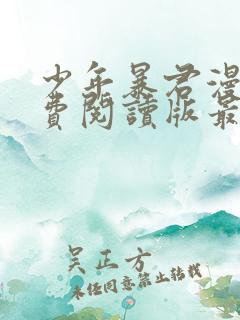 少年暴君漫
費閱讀版最
吴正方
未经同意禁止转载